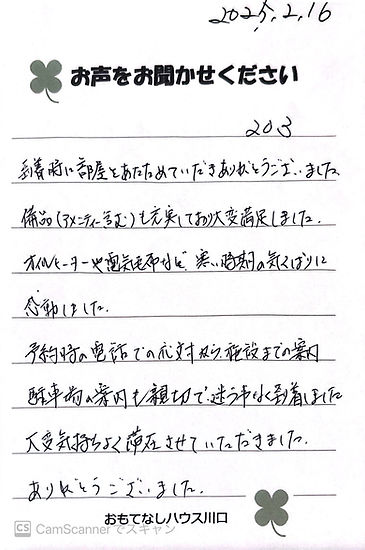 2025.2.16
お声をお聞かせください
203
到着時に部屋をあたためていただきありがとうございました
備品(アメニティー含む)も充実しており大変満足しました.
オイルヒーターや電気毛布など、寒い時期の気くばりに
感動しました.
予約時の電話での応対から、施設までの案内
駐車場の案内も親切で、迷う事なく到着しました
大変気持ちよく滞在させていただきました.
ありがとうございました.
おもてなしハウス川口
CS CamScannerでスキャン